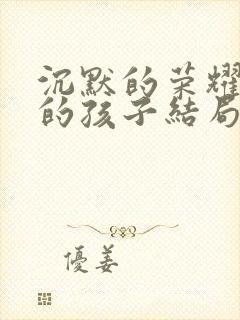 沉默的荣耀
的孩子結局
優姜